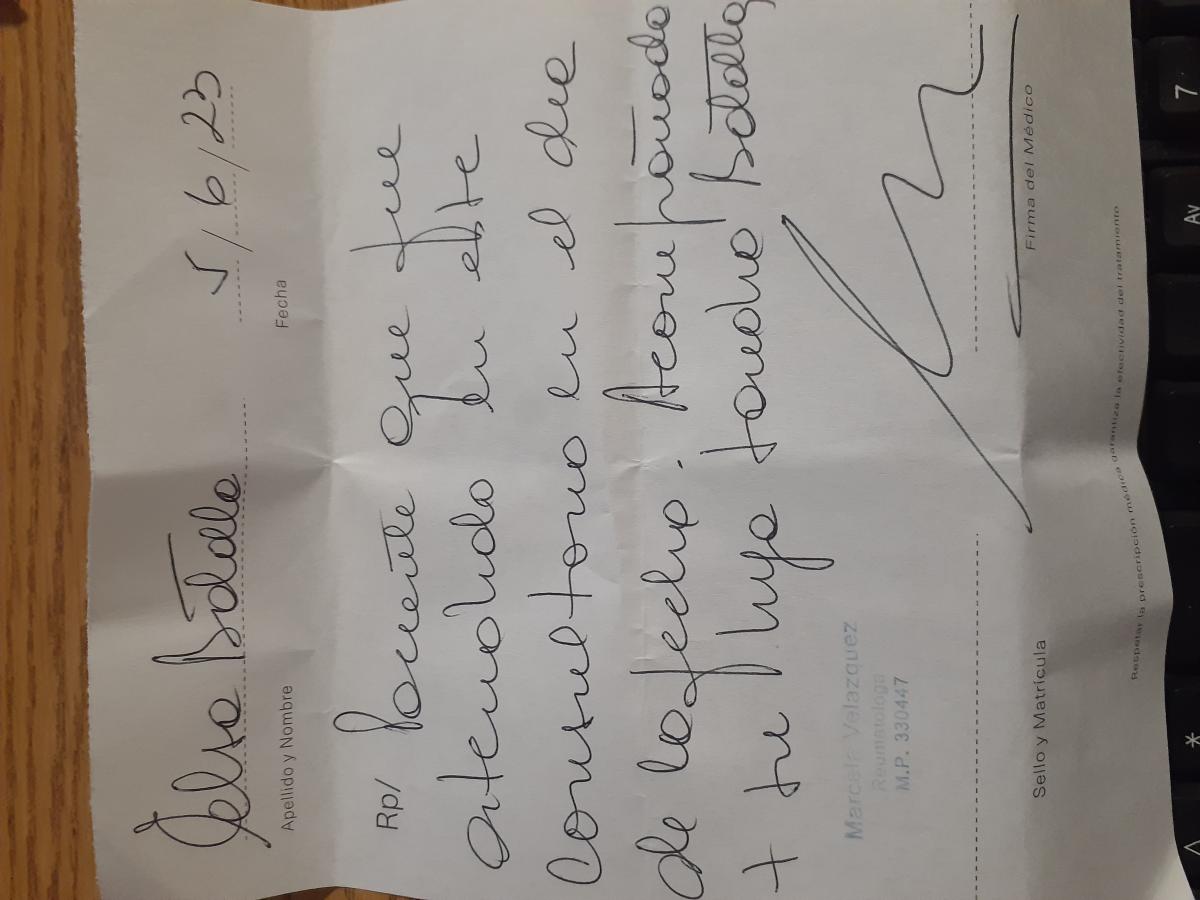 5/6/23
Apellido y Nombre Fecha
Rp/ Paciente que fue
atendido en este
Consultorio en el dia
de la fecha. Acompañada
+ su hijo
Marcela Velazquez
Reumatologa
M.P. 330447
Sello y Matrícula Firma del Médico
Respetar la prescripción médica garantiza la efectividad del tratamiento
7
Av
*
^